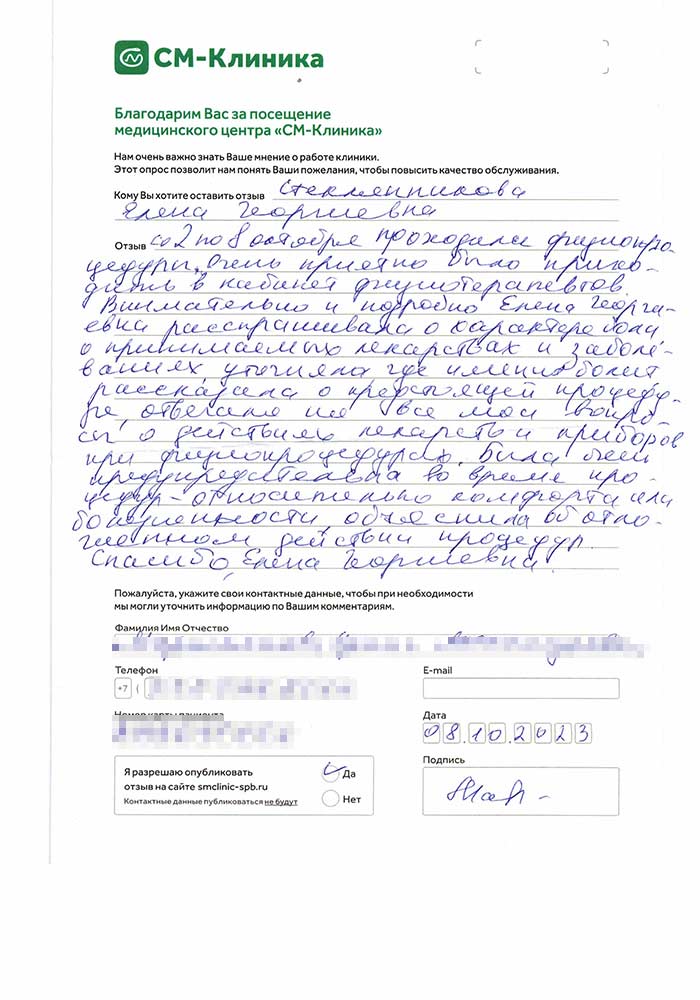 СМ-Клиника
Благодарим Вас за посещение
медицинского центра «СМ-Клиника»
Нам очень важно знать Ваше мнение о работе клиники.
Этот опрос позволит нам понять Ваши пожелания, чтобы повысить качество обслуживания.
Кому Вы хотите оставить отзыв Стекленникова
Елена Георгиевна
Отзыв со 2 по 8 октября проходила физиопро-
цедуры. Очень приятно было прихо-
дить в кабинет физиотерапевтов.
Внимательно и подробно Елена Георги-
евна расспрашивала о характере боли
о принимаемых лекарствах и заболе-
ваниях, уточняла где именно болит
рассказала о предстоящей процеду-
ре, отвечала на все мои вопро-
сы, о действии лекарств и приборов
при физиопроцедурах. Была очень
предупредительна во время про-
цедур - относительно комфорта или
болезненности, объяснила об отло-
женном действии процедур.
Спасибо, Елена Георгиевна.
Пожалуйста, укажите свои контактные данные, чтобы при необходимости
мы могли уточнить информацию по Вашим комментариям.
Фамилия Имя Отчество
Телефон
E-mail
+7 (
Номер карты пациента
Дата
08.10.2023
Я разрешаю опубликовать
отзыв на сайте smclinic-spb.ru
Контактные данные публиковаться не будут
Да
Нет
Подпись